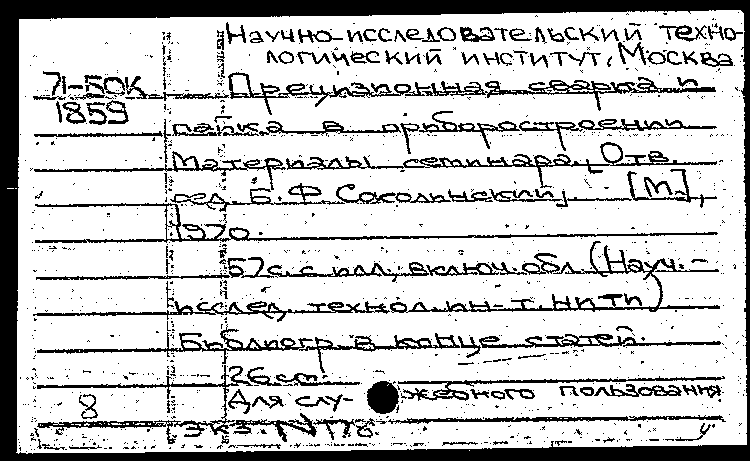 Научно-исследовательский техно-
логический институт, Москва
71-50К
1859
Прецизионная сварка и
пайка в приборостроении
Материалы семинара. [Отв.
ред. Б. Ф Соколинский]. [М.],
1970.
57с. с илл., включ. обл. (Науч.-
исслед. технол. ин-т. НИТИ)
Библиогр. в конце статей.
26 см.
Для слу- жебного пользования
8
экз. №178.